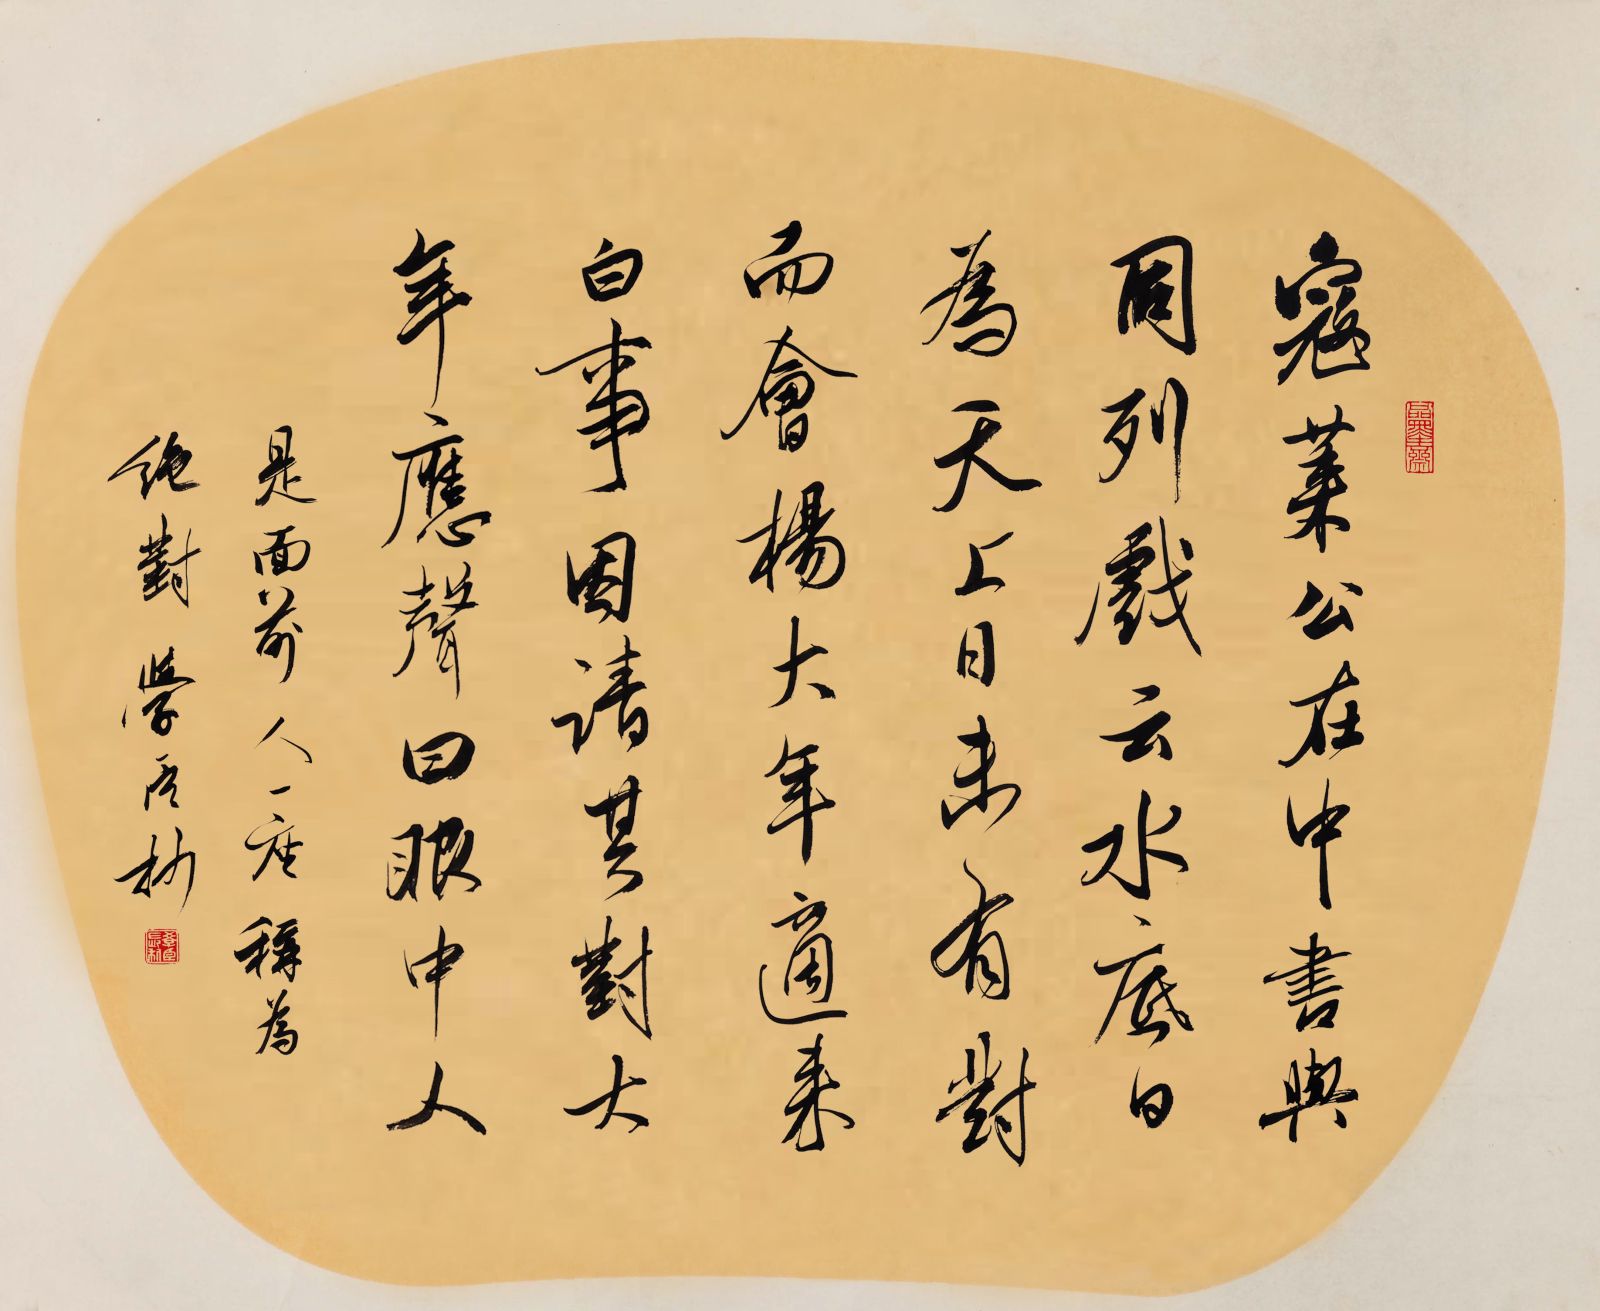 寇莱公在中書與
同列戲云水底日
為天上日未有對
而會楊大年適来
白事因請其對大
年應聲曰眼中人
是面前人一座稱為
絕對 學